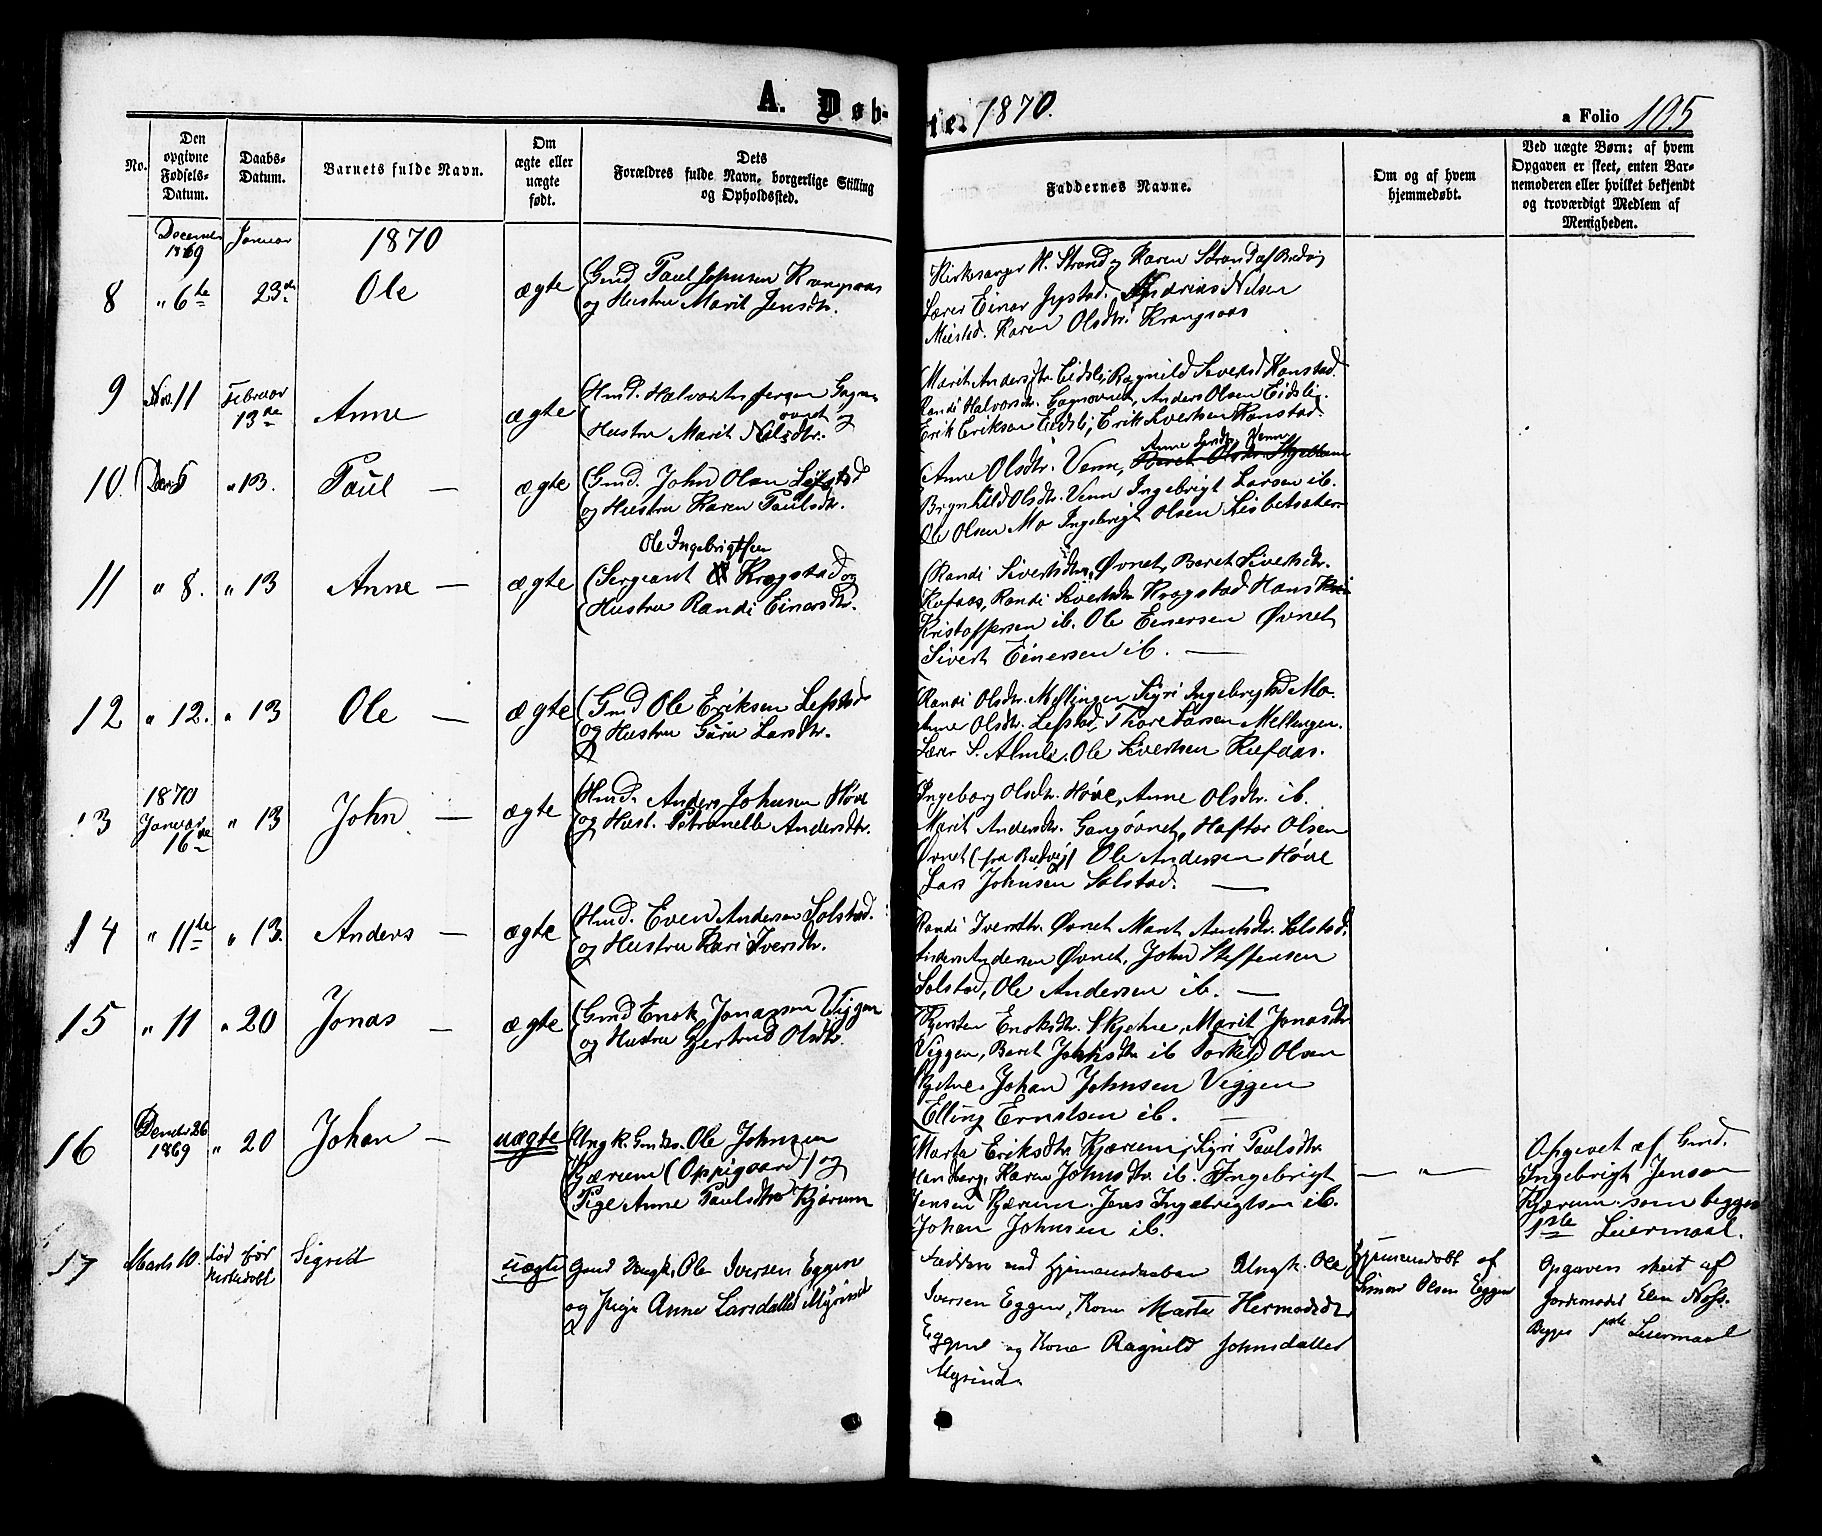 A. Døb-
te. 1870.
a Folio 105
No.
Den opgivne Fødsels-Datum.
Daabs-Datum.
Barnets fulde Navn.
Om ægte eller uægte født.
Dets Forældres fulde Navn, borgerlige Stilling og Opholdssted.
Faddernes Navne.
Om og af hvem hjemmedøbt.
Ved uægte Børn: af hvem Opgaven er skeet, enten Barnemoderen eller hvilket bekjendt og troværdigt Medlem af Menigheden.
December 1869
Januar
1870
8 " 6te 23de Ole ægte
(Gmd Paul Johnsen Krangsaas
og Hustru Marit Jensdtr.
Kirkesanger H. Strand og Karen Strand af Budvig
Lærer Einar Jystad. Andrias Nilsen
Karen Olsdtr. Krangsaas
9 Nov. 11 Februar 13de Anne ægte
Hustru Marit Nilsdtr.
(Marit Andersdtr. Eidsli, Ragnild Sivertsd Hanstad.
Randi Halvorsdtr. Gagnovnet, Anders Olsen Eidsli.
Erik Eriksen Eidsli, Erik Sivertsen Hanstad.
10. Decbr 5 " 13. Paul — ægte
(Gmd. John Olsen Lefstad
og Hustru Karen Paulsdtr.
(Anne Olsdtr. Venn,
Brynhild Olsdtr. Venn Ingebrigt Larsen ib.
Ole Olsen Mo Ingebrigt Olsen
11 " 8. " 13 Anne — ægte
Ole Ingebrigtsen
(Sergeant Krogstad og
(Hustru Randi Einarsdtr.
(Randi Sivertsdtr. Øvnet, Beret Sivertsdtr.
Rofaas, Randi Sivertsdtr Krogstad Hans
Kristoffersen ib. Ole Einersen Øvnet
Sivert Einersen ib. —
12 " 12. " 13 Ole — ægte
(Gmd Ole Eriksen Lefstad
og Hustru Guru Larsdtr.
Randi Olsdtr. Mellingen Siri Ingebrigtsd Mo.
Anne Olsdtr. Lefstad, Thore Larsen Mellingen.
Lærer S. Almli. Ole Sivertsen Rofaas.
13 1870 Januar 16de " 13 John — ægte
(Hmd. Anders Johnsen Høve
og Hust. Petronelle Andersdtr.
Ingeborg Olsdtr. Høve, Anne Olsdtr. ib.
Marit Andersdtr. Gangøvnet, Haftor Olsen
Øvnet (fra Budvig) Ole Andersen Høve
Lars Johnsen Solstad. —
14 " 11te " 13. Anders — ægte
(Hmd. Even Andersen Solstad.
og Hustru Kari Iversdtr.
Randi Iversdtr. Øvnet Marit Arntsdr. Solstad.
Anders Andersen Øvnet, John Steffensen
Solstad, Ole Andersen ib. —
15 " 11 " 20 Jonas — ægte
(Gmd Enok Jonassen Viggen
og Hustru Gjertrud Olsdtr.
Kjersten Enoksdtr. Skjetne, Marit Jonasdtr
Viggen, Beret Johnsdtr ib Torkild Olsen
Johan Johnsen Viggen
Elling Erntsen ib.
16 Decmbr 26 1869 " 20 Johan — uægte
(Ungk. Gmdss. Ole Johnsen
Kjærum (Oppigaard) og
Pige Anne Paulsdtr Kjærum
Marta Eriksdtr Kjærum, Siri Paulsdtr
Karen Johnsdtr ib. Ingebrigt
Jensen Kjærum. Jens Ingebrigtsen ib.
Johan Johnsen ib.
— " —
Opgivet af Gmd.
Ingebrigt Jensen
Kjærum. som begges
1ste Leiermaal.
17 Marts 10. død før kirkedøbt Sigrid uægte
Gmd Ungk. Ole Iversen Eggen
og Pige Anne Larsdatter Myrind
Faddere ved Hjemmedaaben Ungk. Ole
Iversen Eggen, Kone Marta Hermodsdtr
Eggen og Kone Ragnild Johnsdatter
Myrind.
Hjemmedøbt af
Simon Olsen Eggen
Opgaven skeet af
Jordemoder Elen
Begges 1ste Leiermaal